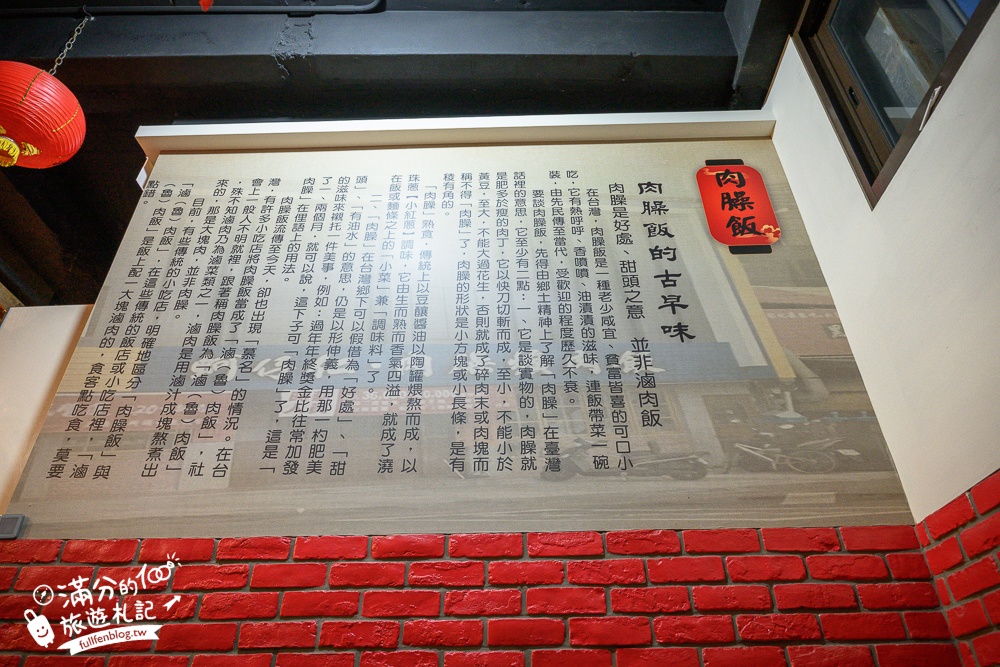 肉臊飯
肉臊飯的古早味
肉臊是好處、甜頭之意　並非滷肉飯
在台灣，肉臊飯是一種老少咸宜、貧富皆喜的可口小
吃，它有熱呼呼、香噴噴、油漬漬的滋味，連飯帶菜一碗
裝，由先民傳至當代，受歡迎的程度歷久不衰。
要談肉臊飯，先得由鄉土精神上了解「肉臊」在臺灣
話裡的意思，它至少有二點：一、它是談實物的，肉臊就
是肥多於瘦的肉丁，它以快刀切斬而成，至小，不能小於
黃豆，至大，不能大過花生，否則就成了碎肉末或肉塊而
稱不得「肉臊」了，肉臊的形狀是小方塊或小長條，是有
稜有角的。
「肉臊」熟食，傳統上以豆釀醬油以陶罐煨熬而成，以
珠蔥【小紅蔥】調味，它由生而熟而香氣四溢，就成了澆
在飯或麵條之上的「小菜」兼「調味料」了。
二、「肉臊」在台灣鄉下可以假借為「好處」、「甜
頭」、「有油水」的意思，仍是以形伸義，用那一杓肥美
的滋味來襯托一件美事，例如：過年年終獎金比往常加發
了一、兩個月，就可以說，這下子可「肉臊」了，這是「
肉臊」在俚語上的用法。
肉臊飯流傳至今天，卻也出現「慕名」的情況。在台
灣，有許多小吃店將肉臊飯當成了「滷（魯）肉飯」，社
會上一般人不明就裡，跟著稱肉臊飯為「滷（魯）肉飯」
，殊不知滷肉乃為滷菜類之一，滷肉是用滷汁成塊熬煮出
來的，那是大塊肉，並非肉臊。
目前，有些傳統的小吃店，明確地區分「肉臊飯」與
「滷（魯）肉飯」，在這些傳統的飯店或小吃店裡，「滷
（魯）肉飯」是飯上配一大塊滷肉的，食客點吃食，莫要
點錯。
滿分的100
旅遊札記
fullfenblog.tw